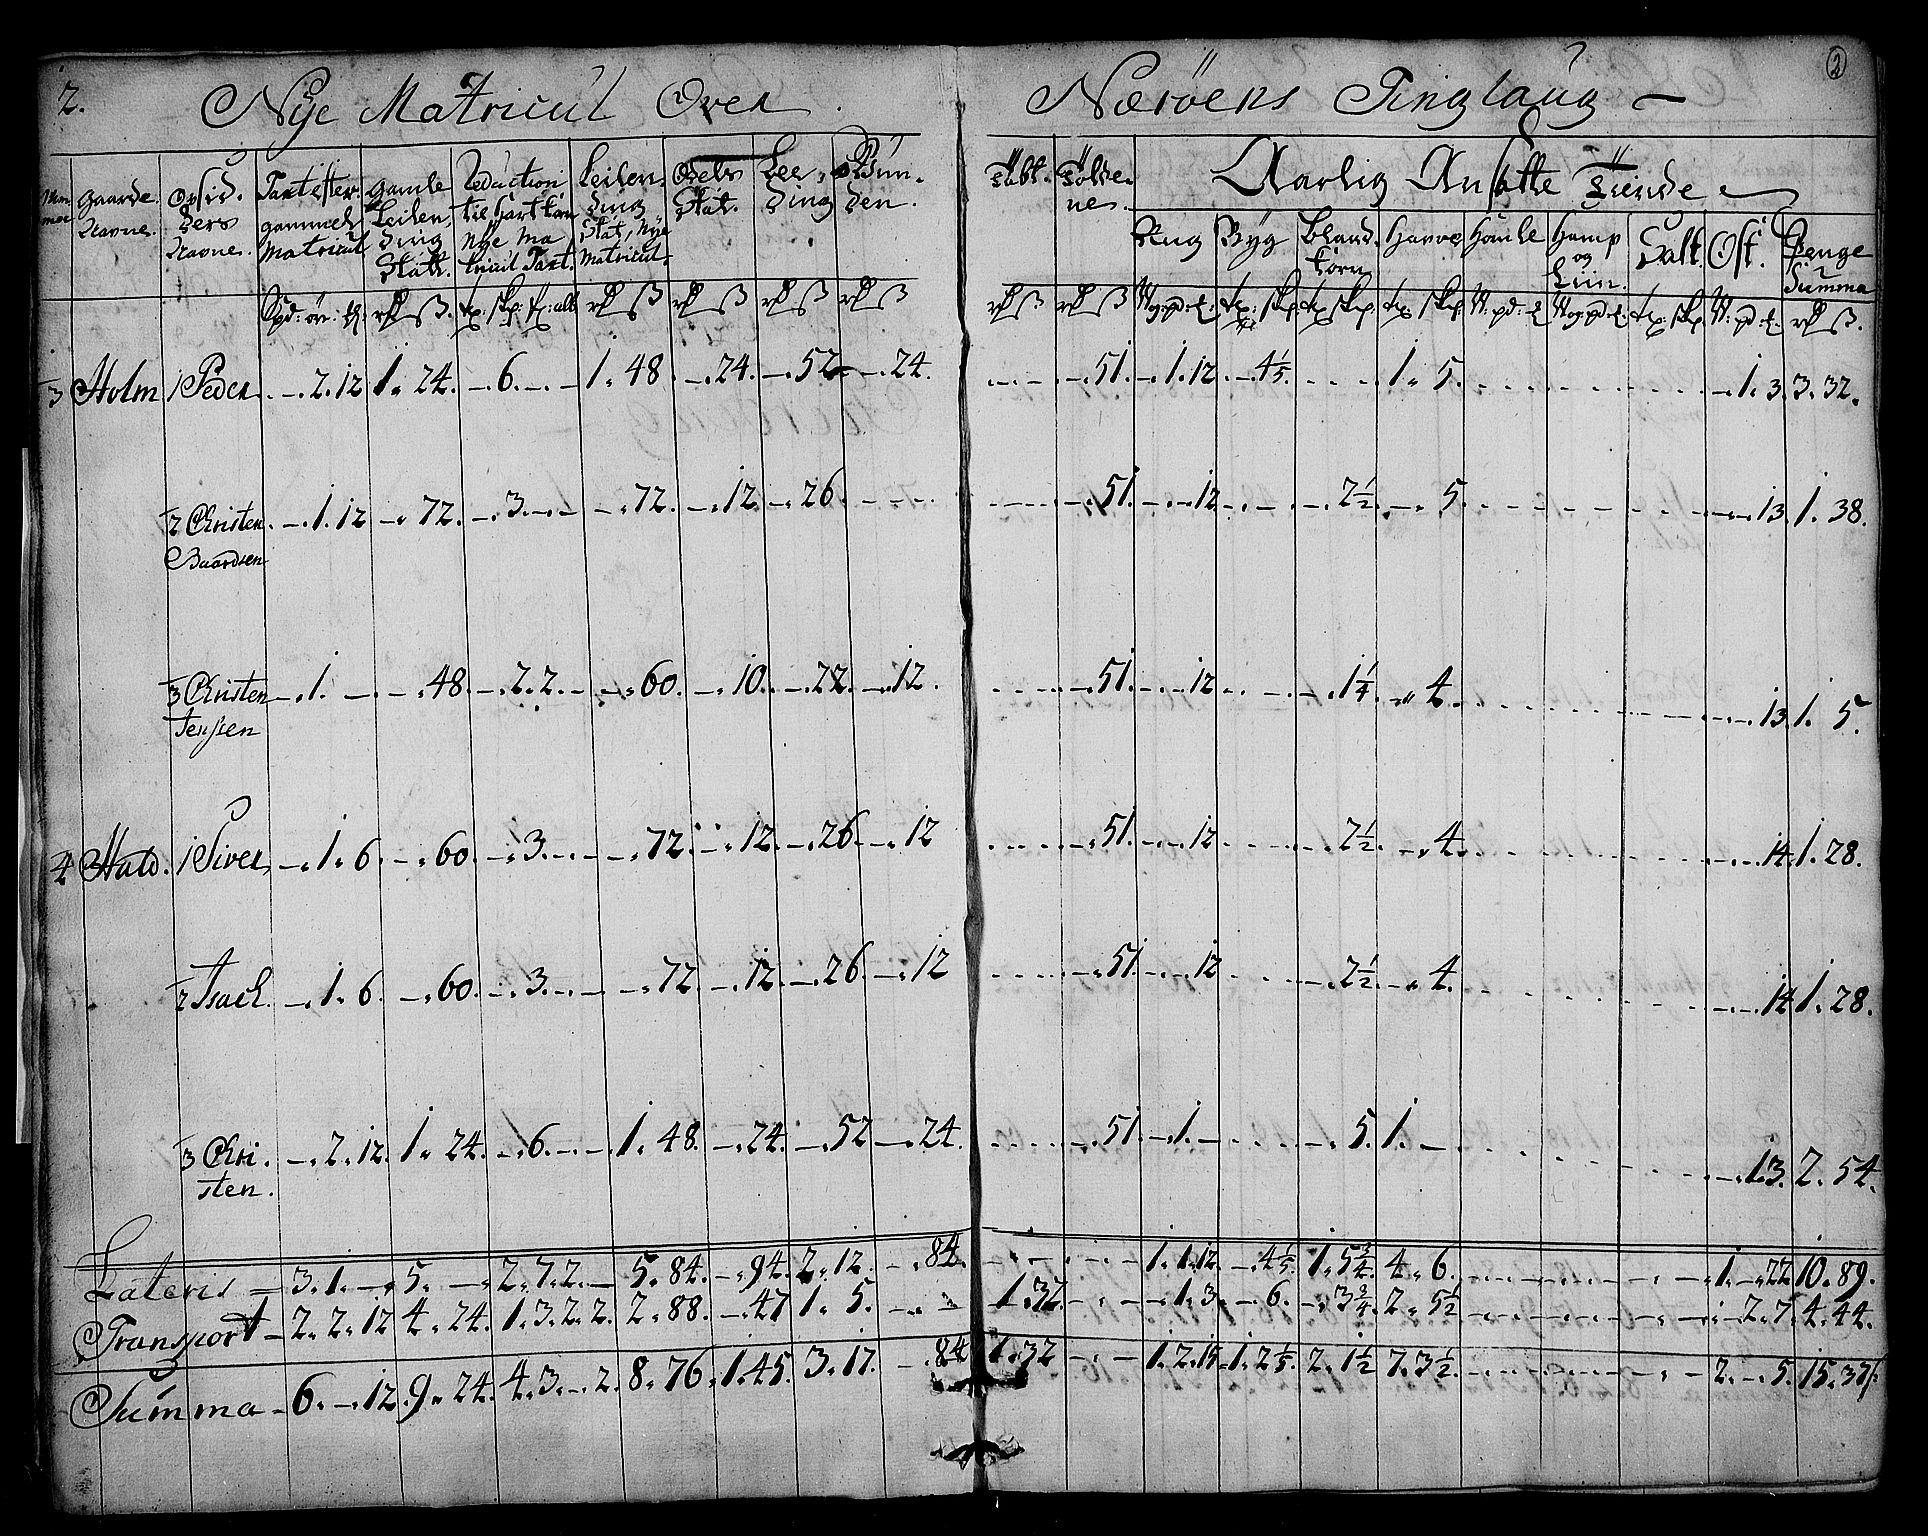 2. Nye Matricul Over Næröens Tinglaug 2
Num
mer Gaarde
Navne. Opsid-
ders
Navne. Taxt efter
gammel
Matricul Gamle
Leilen-
dings
Skatt. Reduction
til Hartkorn
Nye Ma
tricul Taxt. Leilen-
ding
Skat, Nye
Matricul. Odels
Skat. Lee,
ding Bun-
den. Told-
ne. Aarlig Ansatte Tiende
Rug Byg Bland-
korn Havre Homle Hamp
og
Liin. Salt. Ost. Penge
Summa
3 Holm 1 Peder. -. 2. 12 1. 24. -. 6. -. - 1. 48 -. 24. -. 52 -. 24. -. 51. -. 1. 12 -. 4 1/5. 1. 5. -. 1. 3. 3. 32.
2 Christen -. 1. 12 -. 72. -. 3. -. - -. 72. -. 12. -. 26. -. 51. -. 12 -. 2 1/2. -. 5. -. 13. 1. 38.
Baardsen
3 Christen -. 1. - -. 48. -. 2. 2. - -. 60. -. 10. -. 22. -. 12. -. 51. -. 12 -. 1 1/4. -. 4. -. 13. 1. 5.
Jenssen
4 Hald. 1 Siver -. 1. 6. -. 60. -. 3. -. - -. 72. -. 12. -. 26. -. 12 -. 51. -. 12 -. 2 1/2. -. 4. -. 14. 1. 28.
2 Isach. -. 1. 6. -. 60. -. 3. -. - -. 72. -. 12. -. 26. -. 12 -. 51. -. 12 -. 2 1/2. -. 4. -. 14. 1. 28.
3 Chri -. 2. 12. 1. 24. -. 6. -. - 1. 48. -. 24. -. 52 -. 24. -. 51. -. 1. - -. 5. 1. - -. 13. 2. 54.
sten.
Lateris = 3. 1. - 5. - 2. 7. 2. - 5. 84. -. 94. 2. 12. -. 84. 1. 1. 12. -. 4 1/5. 1. 5 3/4. 4. 6. 1. -. 22 10. 89.
Transport - 2. 2. 12 4. 24. 1. 3. 2. 2. 2. 88. -. 47 1. 5. -. - 1. 32. -. 1. 3. -. 6. -. 3 3/4. 2. 5 1/2 -. 2. 7. 4. 44.
Summa - 6. -. 12. 9. 24. 4. 3. -. 2. 8. 76. 1. 45. 3. 17. -. 84 1. 32 1. 2. 15 -. 1. 2 1/5. 2. 1 1/2 7. 3 1/2. 2. -. 5. 15. 37.